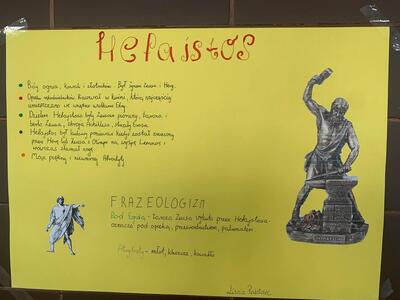 Hefajstos
Bóg ognia, kowali i złotników. Był synem Zeusa i Hery.
Opiekun rzemieślników. Pracował w kuźni, którą najczęściej
umieszczano we wnętrzu wulkanu Etny.
Dziełem Hefajstosa były Zeusowe pioruny, tarcza i
berło Zeusa, zbroja Achillesa, strzały Erosa.
Hefajstos był kulawy ponieważ kiedyś został zrzucony
przez Herę lub Zeusa z Olimpu na wyspę Lemnos i
wówczas złamał nogę.
Mąż pięknej i niewiernej Afrodyty.
FRAZEOLOGIZM
Pod Egidą - tarcza Zeusa wykuta przez Hefajstosa
oznacza: pod opieką, przewodnictwem, patronatem.
Atrybuty - młot, kleszcze, kowadło